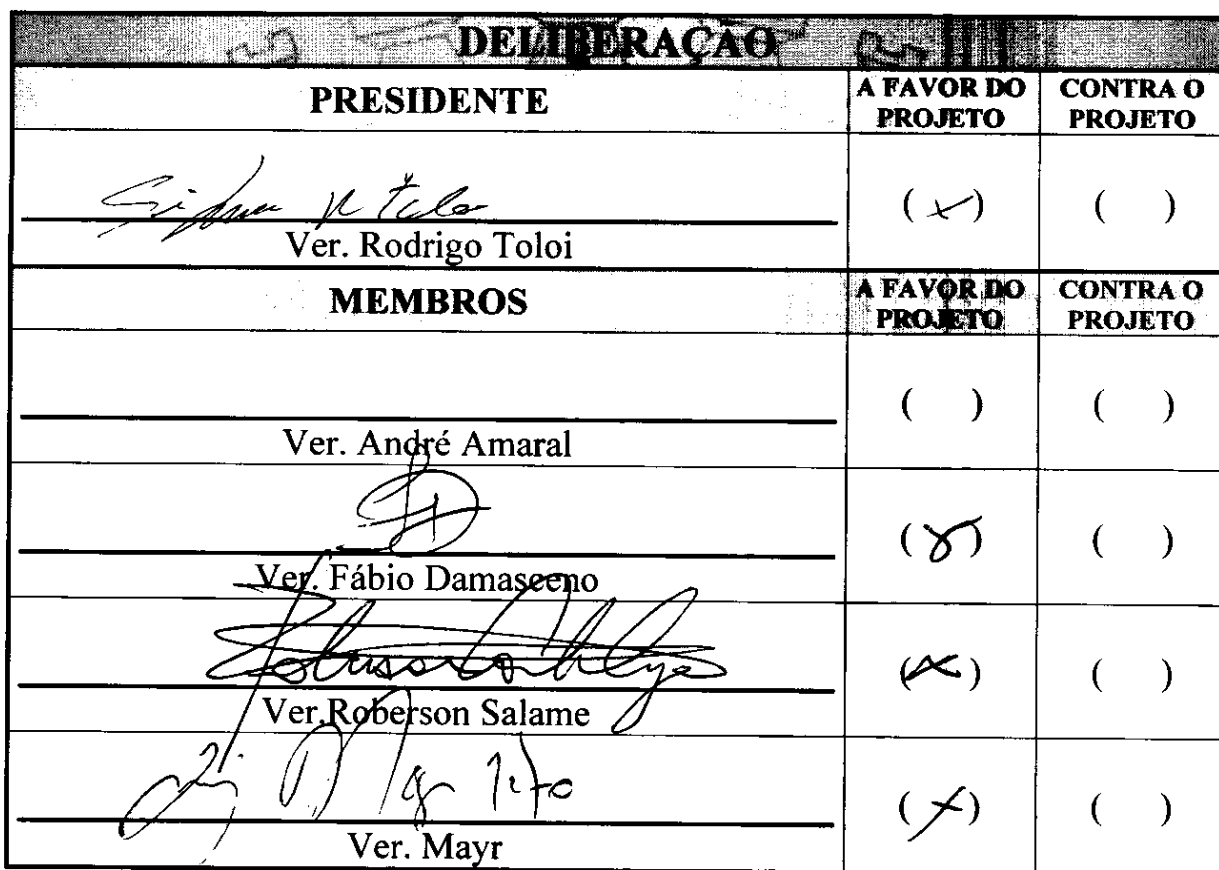 DELIBERAÇAO
PRESIDENTE
A FAVOR DO PROJETO
CONTRA O PROJETO
(x) ( )
Ver. Rodrigo Toloi
MEMBROS
A FAVOR DO PROJETO
CONTRA O PROJETO
( ) ( )
Ver. André Amaral
(x) ( )
Ver. Fábio Damasceno
(x) ( )
Ver.Roberson Salame
(x) ( )
Ver. Mayr